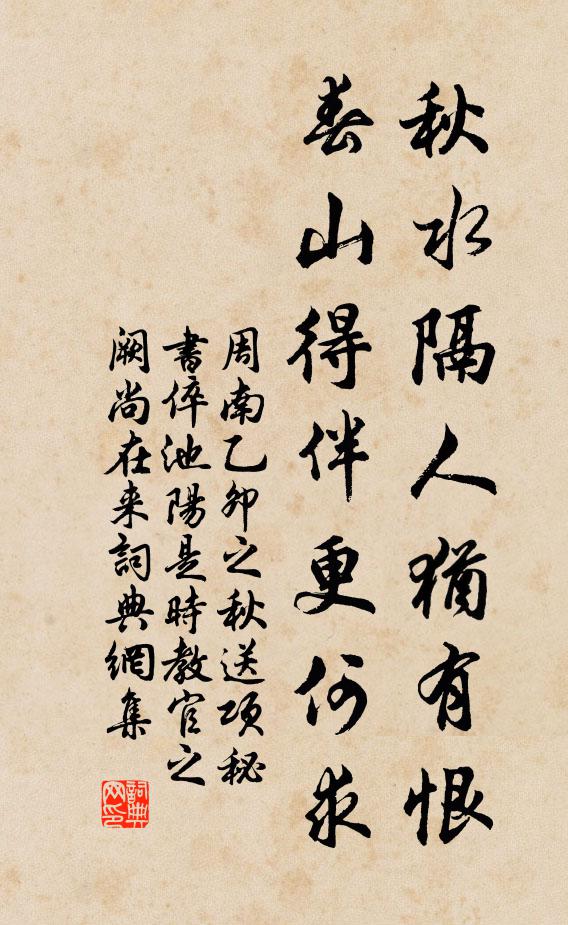 秋水隔人猶有恨
春山得伴更何求
周南乙卯之秋送項秘
書倅池陽是時教官之
闕尚在来詞典網集
詞典
网印